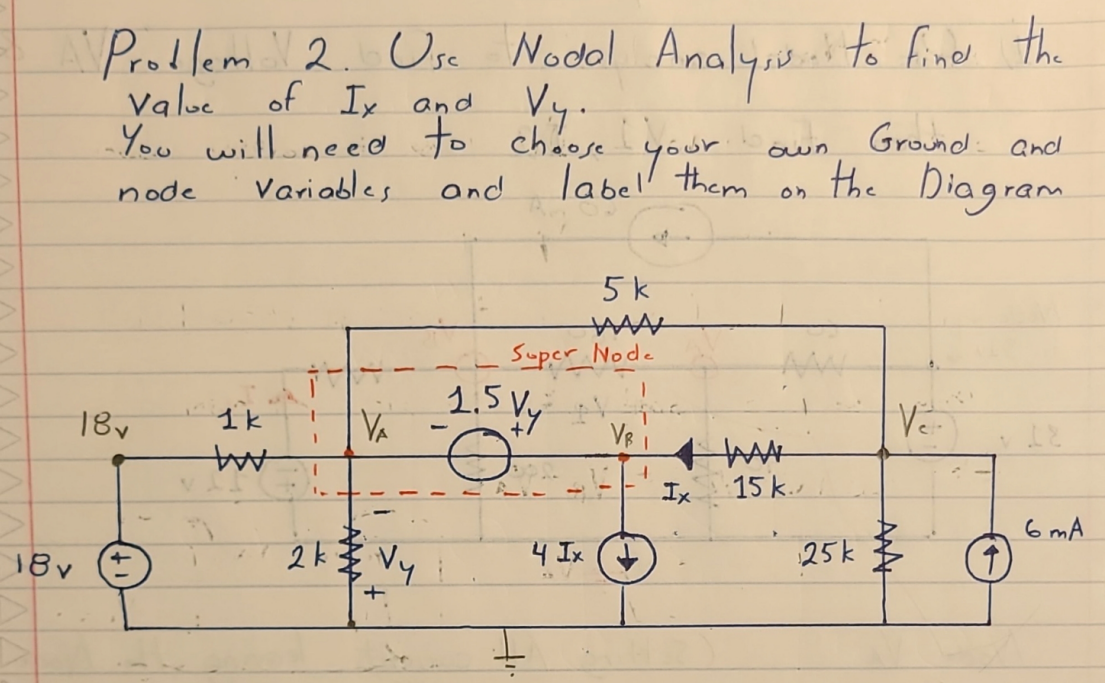 Problem 2. Use Nodal Analysis to find the
value of Ix and Vy.
You will need to choose your own Ground and
node variables and label them on the Diagram
5 k
Super Node
1.5 Vy
18v
1k
VA
- +
VB
Vc
Ix
15k
-
18v
+
-
2k
Vy
+
4 Ix
25k
6 mA